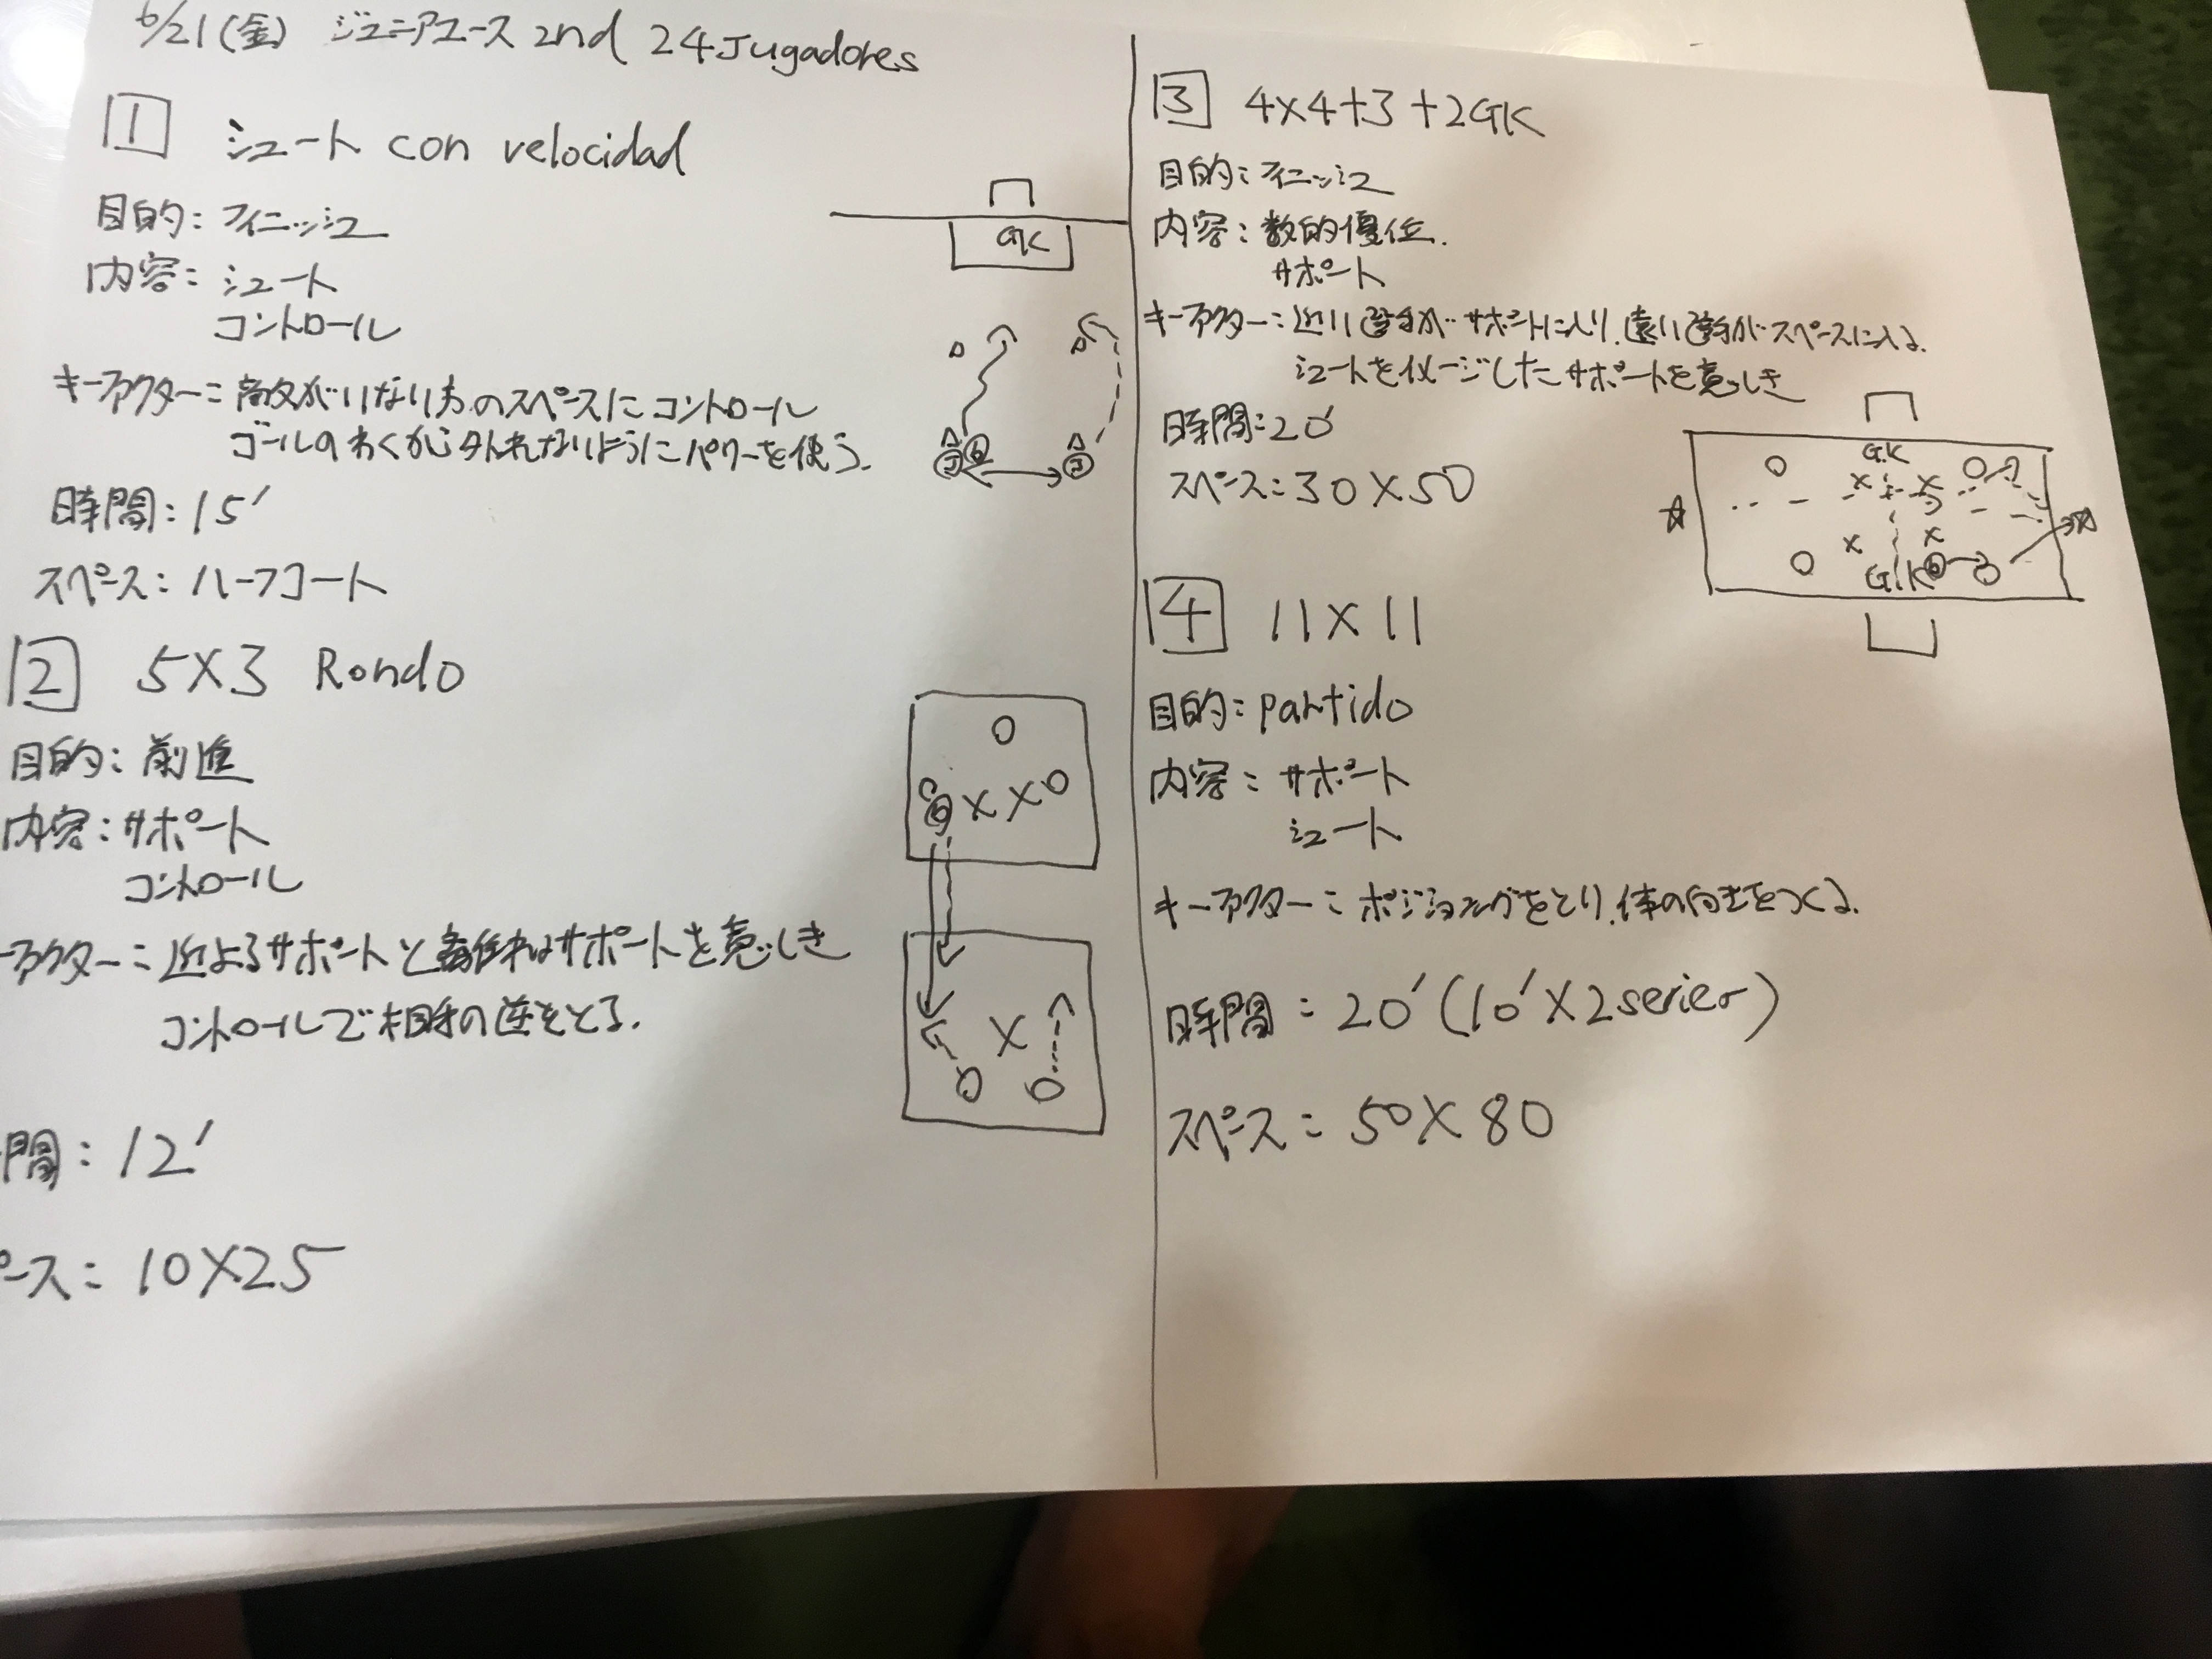 6/21(金) ジュニアユース 2nd 24 Jugadores
1 シュート con velocidad
目的: フィニッシュ
内容: シュート
コントロール
キーファクター: 敵がいない方のスペースにコントロール
ゴールのわくから外れないようにパワーを使う.
時間: 15'
スペース: ハーフコート
GK
2 5×3 Rondo
目的: 前進
内容: サポート
コントロール
ーファクター: 近よるサポートと離れるサポートを意しき
コントロールで相手の逆をとる.
間: 12'
ペース: 10×25
3 4×4+3+2GK
目的: フィニッシュ
内容: 数的優位.
サポート
キーファクター: 近い選手がサポートに入り、遠い選手がスペースに入る.
シュートをイメージしたサポートを意しき
時間: 20'
スペース: 30×50
G.K
G.K
4 11×11
目的: partido
内容: サポート
シュート
キーファクター: ポジショニングをとり、体の向きをつくる.
時間: 20' (10'×2 serier)
スペース: 50×80